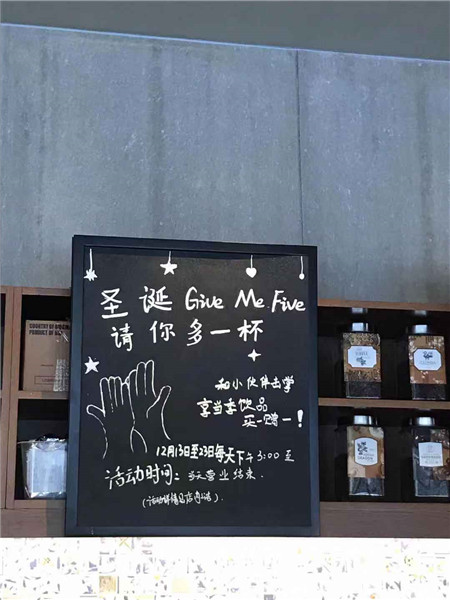 圣诞 Give Me Five
请你多一杯
和小伙伴击掌
享当季饮品
买一赠一!
12月13日至23日每天下午3:00至
活动时间: 当天营业结束.
(活动详情见店内公告).
COUNTRY OF
PRODUCT OF